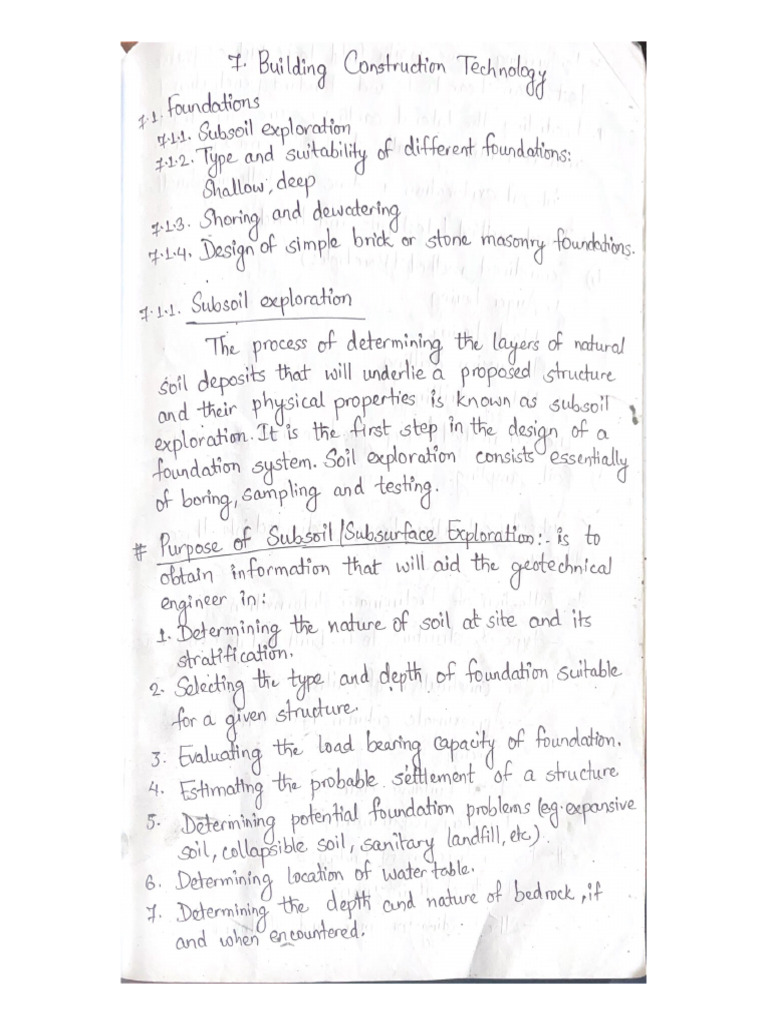 7. Building Construction Technology
7.1. Foundations
7.1.1. Subsoil exploration
7.1.2. Type and suitability of different foundations:
Shallow, deep
7.1.3. Shoring and dewatering
7.1.4. Design of simple brick or stone masonry foundations.
7.1.1. Subsoil exploration
The process of determining the layers of natural
soil deposits that will underlie a proposed structure
and their physical properties is known as subsoil
exploration. It is the first step in the design of a
foundation system. Soil exploration consists essentially
of boring, sampling and testing.
# Purpose of Subsoil/Subsurface Exploration:- is to
obtain information that will aid the geotechnical
engineer in:
1. Determining the nature of soil at site and its
stratification.
2. Selecting the type and depth of foundation suitable
for a given structure.
3. Evaluating the load bearing capacity of foundation.
4. Estimating the probable settlement of a structure
5. Determining potential foundation problems (eg. expansive
soil, collapsible soil, sanitary landfill, etc).
6. Determining location of water table.
7. Determining the depth and nature of bedrock, if
and when encountered.